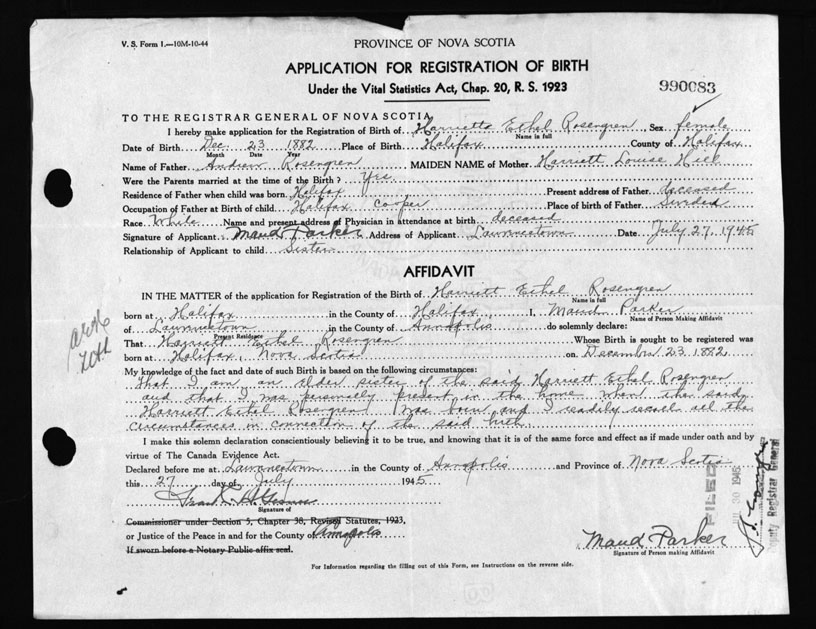 V. S. Form 1.—10M-10-44
PROVINCE OF NOVA SCOTIA
APPLICATION FOR REGISTRATION OF BIRTH
Under the Vital Statistics Act, Chap. 20, R. S. 1923
990083
TO THE REGISTRAR GENERAL OF NOVA SCOTIA
I hereby make application for the Registration of Birth of Harrietta Ethel Rosengren Sex female
Name in full
Date of Birth Dec 23 1882 Place of Birth Halifax County of Halifax
Month Date Year
Name of Father Andrew Rosengren MAIDEN NAME of Mother Harriett Louise
Were the Parents married at the time of the Birth? Yes
Residence of Father when child was born Halifax Present address of Father deceased
Occupation of Father at Birth of child Halifax Cooper Place of birth of Father Sweden
Race White Name and present address of Physician in attendance at birth deceased
Signature of Applicant Maud Parker Address of Applicant Lawrencetown Date July 27, 1945
Relationship of Applicant to child Sister
AFFIDAVIT
IN THE MATTER of the application for Registration of the Birth of Harriett Ethel Rosengren
Name in full
born at Halifax in the County of Halifax I, Maud Parker
Name of Person Making Affidavit
of Lawrencetown in the County of Annapolis do solemnly declare:
Present Residence
That Harriett Ethel Rosengren Whose Birth is sought to be registered was
born at Halifax, Nova Scotia on December 23 1882
My knowledge of the fact and date of such Birth is based on the following circumstances:
That I am an elder sister of the said Harriett Ethel Rosengren
and that I was personally present in the home when the said
Harriett Ethel Rosengren was born and I readily recall all the
circumstances in connection of the said birth.
I make this solemn declaration conscientiously believing it to be true, and knowing that it is of the same force and effect as if made under oath and by
virtue of The Canada Evidence Act.
Declared before me at Lawrencetown in the County of Annapolis and Province of Nova Scotia
this 27 day of July 1945
Frank
Signature of
Commissioner under Section 5, Chapter 38, Revised Statutes, 1923,
or Justice of the Peace in and for the County of Annapolis
If sworn before a Notary Public affix seal.
Maud Parker
Signature of Person making Affidavit
FILED
JUL 30 1945
Deputy Registrar General
For Information regarding the filling out of this Form, see Instructions on the reverse side.